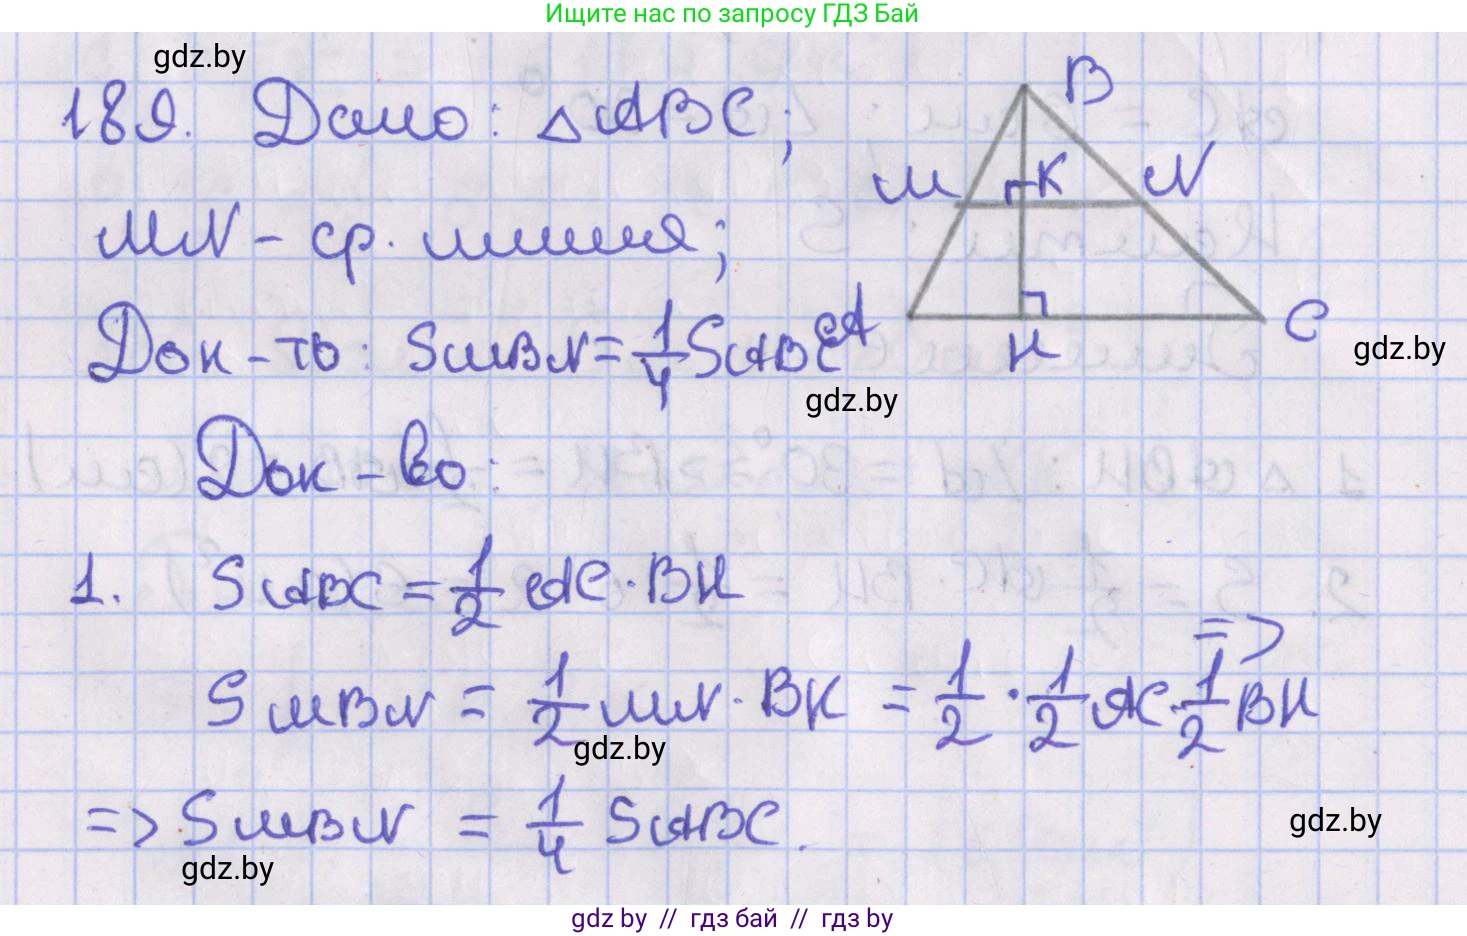 Ищите нас по запросу ГДЗ Бай
gdz.by
189. Дано: △ABC;
B
M K N
MN - ср. линия;
Док-ть: SMBN = 1/4 SABC
A H C
gdz.by
gdz.by
Док-во:
1. SABC = 1/2 AC · BH
=>
SMBN = 1/2 MN · BK = 1/2 · 1/2 AC · 1/2 BH
gdz.by
=> SMBN = 1/4 SABC.
gdz.by
gdz.by
gdz by // гдз бай // гдз by